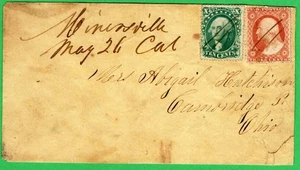 Minersville
May 26 Cal
TEN CENTS
Miss Abigail Hutchison
Cambridge
Ohio